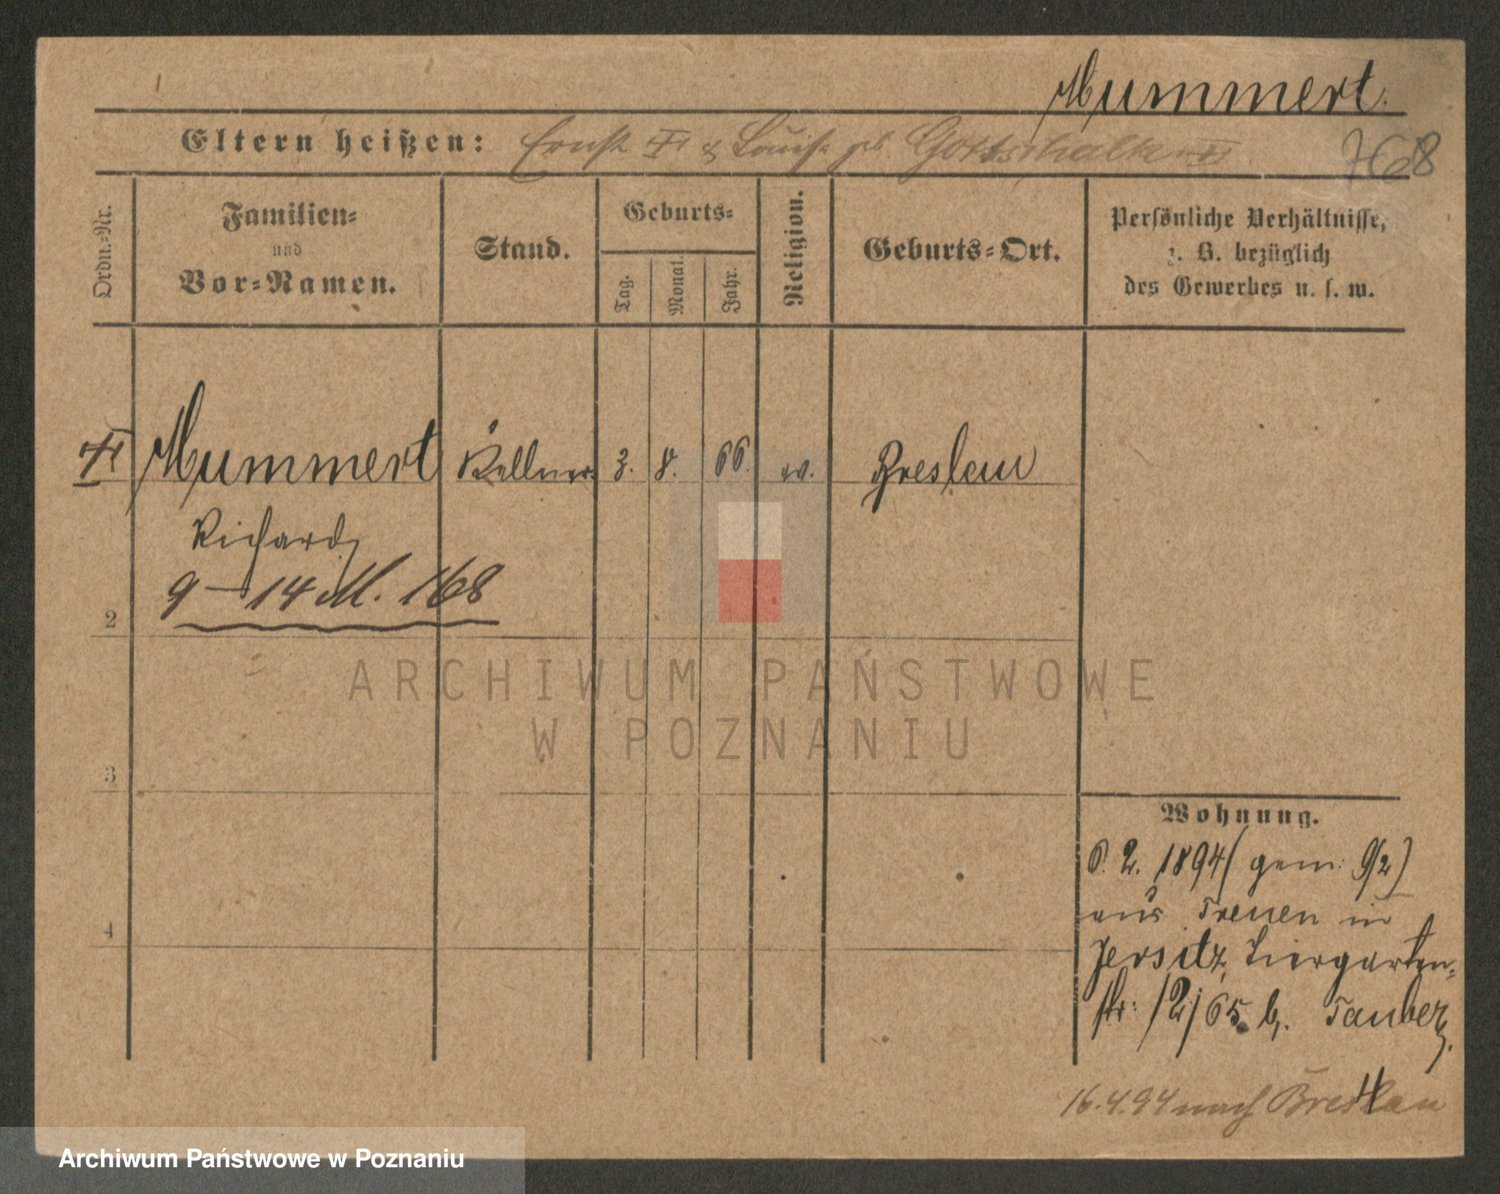 Mummert.
Eltern heißen: Ernst & Louise geb Gottschalk
Ordn.-Nr.
Familien-
und
Vor-Namen.
Stand.
Geburts-
Tag.
Monat.
Jahr.
Religion.
Geburts-Ort.
Persönliche Verhältnisse,
z. B. bezüglich
des Gewerbes u. s. w.
Mummert Kellner 3. 8. 66. ev. Breslau
Richard
9-14 M. 168
2
3
4
Wohnung.
6. 2. 1894 (gem: 9/2)
aus Treuen in
Jersitz, Tiergarten-
str: 12/65 b. Tauber.
16.4.94 nach Breslau
ARCHIWUM PAŃSTWOWE
W POZNANIU
Archiwum Państwowe w Poznaniu